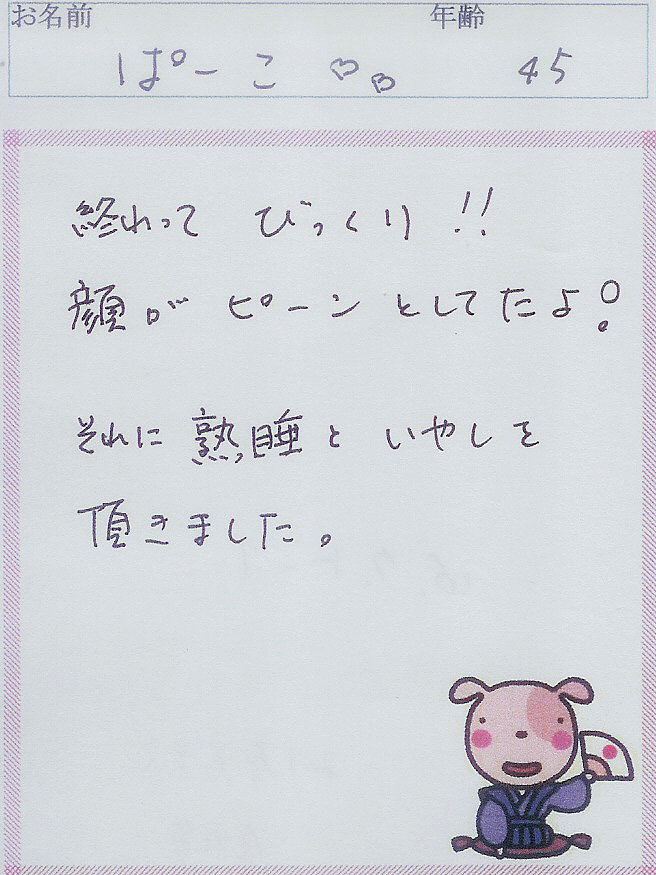 お名前 年齢
ぱーこ ♡♡ 45
終わって びっくり!!
顔が ピーン としてたよ!
それに 熟睡と いやしを
頂きました。